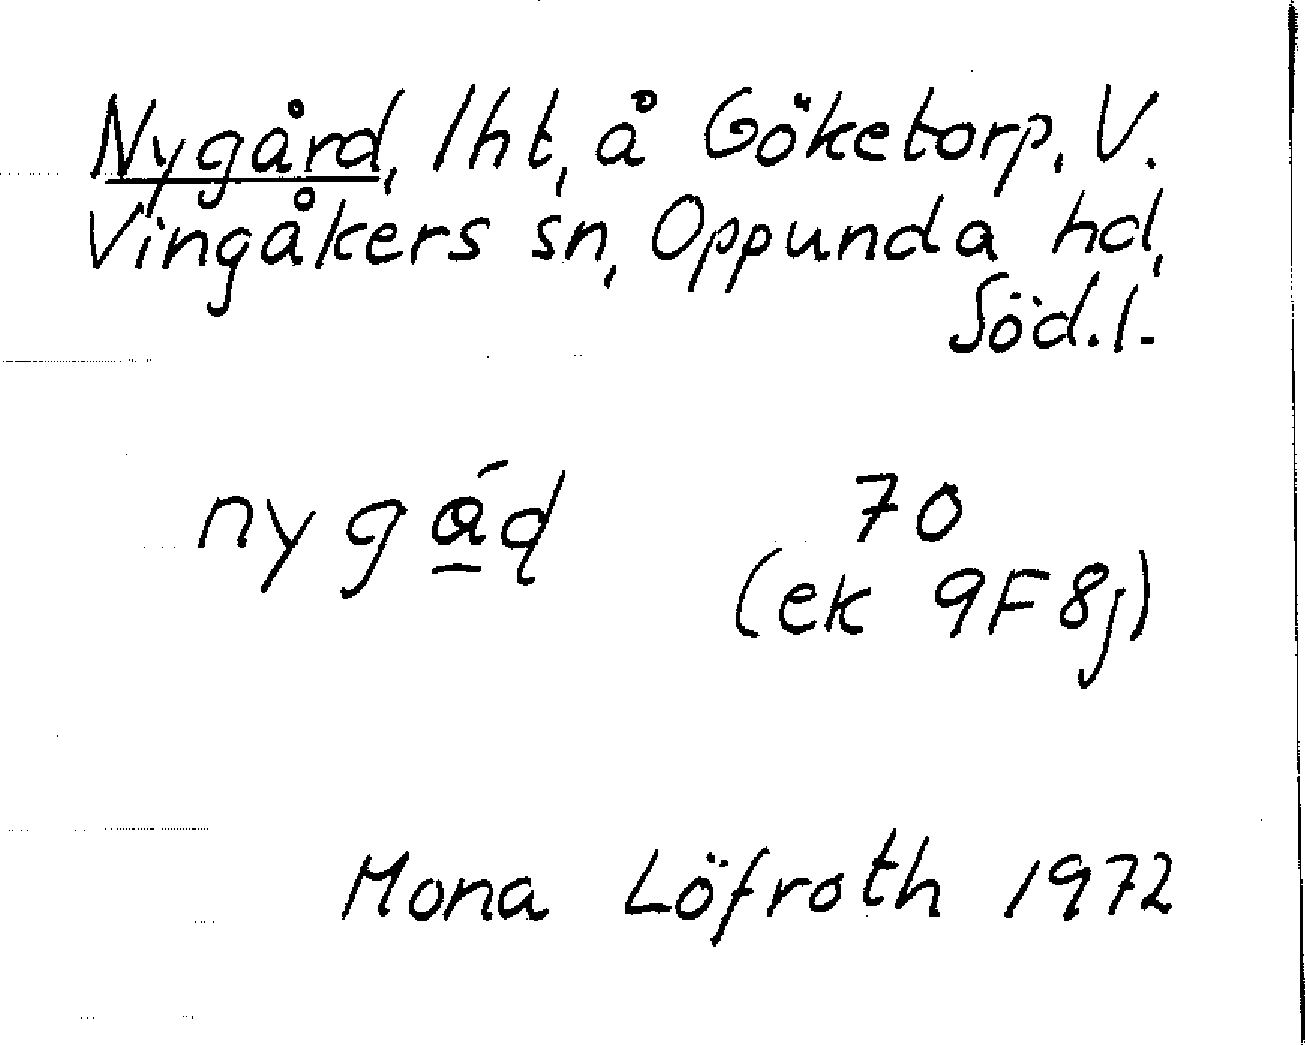 Nygård, lht, å Göketorp, V.
Vingåkers sn, Oppunda hd,
Söd.l.
nygǻ̱ɖ 70
(ek 9F8j)
Mona Löfroth 1972